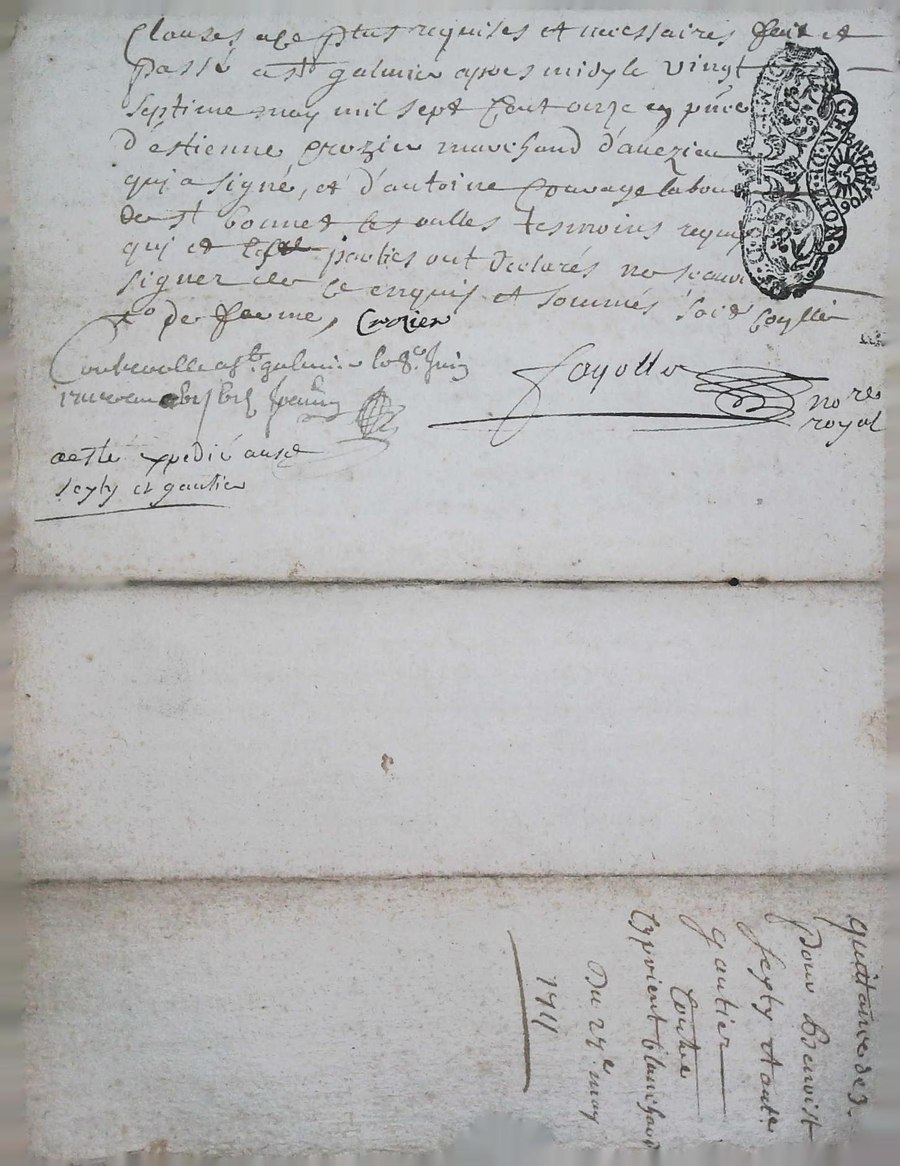 Clauses a ce plus requises et necessaires fait et
passé a st galmier apres midy le vingt
septime may mil sept Cent onze en pñce
d'estienne crozier marchand d'avezieu
qui a signé, et d'antoine Couvage labou
de st bonnet les oulles tesmoins requis
qui et parties ont declarés ne scavoir
signer de ce enquis et sommés soit Coylle
de ferme, Crozier
Controolle a st galmier le 8e Juin
fayolle
nore
royal
aesté expedié ausd
seyty et gautier
GEN.DE.LION.
quittance de 3
pour Benoist
seyty et ante
gautier
Contre
Cyprient blanchard
Du 27e may
1711